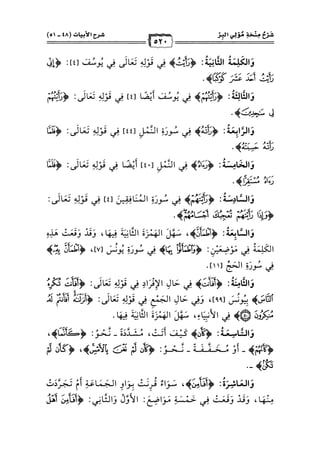 شَرْحُ مِنْحَةِ مُولِي البِرِّ
شرح الأبيات (٤٨ - ٥١)
٥٢٠
وَالكَلِمَةُ الثَّانِيَةُ: ﴿رَأَيْتُ﴾ فِي قَوْلِهِ تَعَالَى فِي يُوسُفَ [٤]: ﴿إِنِّي
رَأَيْتُ أَحَدَ عَشَرَ كَوْكَبًا﴾.
وَالثَّالِثَةُ: ﴿رَأَيْتُهُمْ﴾ فِي يُوسُفَ أَيْضًا [٤] فِي قَوْلِهِ تَعَالَى: ﴿رَأَيْتُهُمْ
لِي سَاجِدِينَ﴾.
وَالرَّابِعَةُ: ﴿رَأَتْهُ﴾ فِي سُورَةِ النَّمْلِ [٤٤] فِي قَوْلِهِ تَعَالَى: ﴿فَلَمَّا
رَأَتْهُ حَسِبَتْهُ﴾.
وَالخَامِسَةُ: ﴿رَءَاهُ﴾ فِي النَّمْلِ [٤٠] أَيْضًا فِي قَوْلِهِ تَعَالَى: ﴿فَلَمَّا
رَءَاهُ مُسْتَقِرًّا﴾.
وَالسَّادِسَةُ: ﴿رَأَيْتَهُمْ﴾ فِي سُورَةِ المُنَافِقِينَ [٤] فِي قَوْلِهِ تَعَالَى:
﴿وَإِذَا رَأَيْتَهُمْ تُعْجِبُكَ أَجْسَامُهُمْ﴾.
وَالسَّابِعَةُ: ﴿اطْمَأَنَّ﴾، سَهَّلَ الهَمْزَةَ الثَّانِيَةَ فِيهَا، وَقَدْ وَقَعَتْ هَذِهِ
الكَلِمَةُ فِي مَوْضِعَيْنِ: ﴿وَاطْمَأَنُّوا بِهَا﴾ فِي سُورَةِ يُونُسَ [٧]، ﴿اطْمَأَنَّ بِهِ﴾
فِي سُورَةِ الحَجِّ [١١].
وَالثَّامِنَةُ: ﴿أَفَأَنْتَ﴾ فِي حَالِ الإِفْرَادِ فِي قَوْلِهِ تَعَالَى: ﴿أَفَأَنْتَ تُكْرِهُ
النَّاسَ﴾ بِيُونُسَ [٩٩]، وَفِي حَالِ الجَمْعِ فِي قَوْلِهِ تَعَالَى: ﴿أَفَأَنْتُمْ لَهُ
مُنْكِرُونَ﴾ فِي الأَنْبِيَاءِ، سَهَّلَ الهَمْزَةَ الثَّانِيَةَ فِيهَا.
وَالتَّاسِعَةُ: ﴿كَأَنَّ﴾ كَيْفَ أَتَتْ، مُشَدَّدَةً - نَحْوُ: ﴿كَأَنَّمَا﴾،
﴿كَأَنَّهُمْ﴾ - أَوْ مُخَفَّفَةً - نَحْوُ: ﴿كَأَنْ لَمْ تَغْنَ بِالْأَمْسِ﴾، ﴿كَأَنْ لَمْ
تَكُنْ﴾ -.
وَالعَاشِرَةُ: ﴿أَفَأَمِنَ﴾، سَوَاءٌ قُرِنَتْ بِوَاوِ الجَمَاعَةِ أَمْ تَجَرَّدَتْ
مِنْهَا، وَقَدْ وَقَعَتْ فِي خَمْسَةِ مَوَاضِعَ: الأَوَّلُ وَالثَّانِي: ﴿أَفَأَمِنَ أَهْلُ